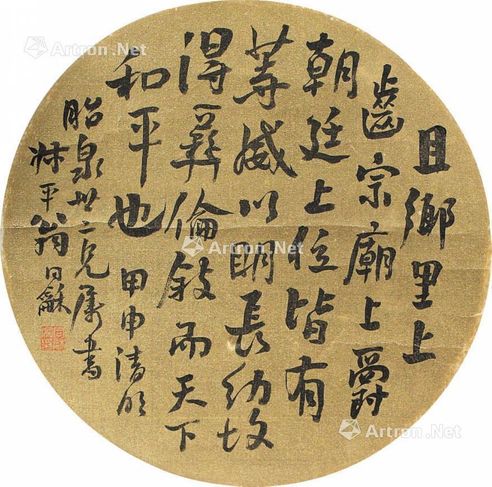 且鄉里上
齒宗廟上爵
朝廷上位皆有
等威以明長幼故
得彝倫敘而天下
和平也 甲申清明
眙泉世二兄屬書
叔平翁同龢
Artron.Net
Artron.Net
Artron.Net
Artron.Net